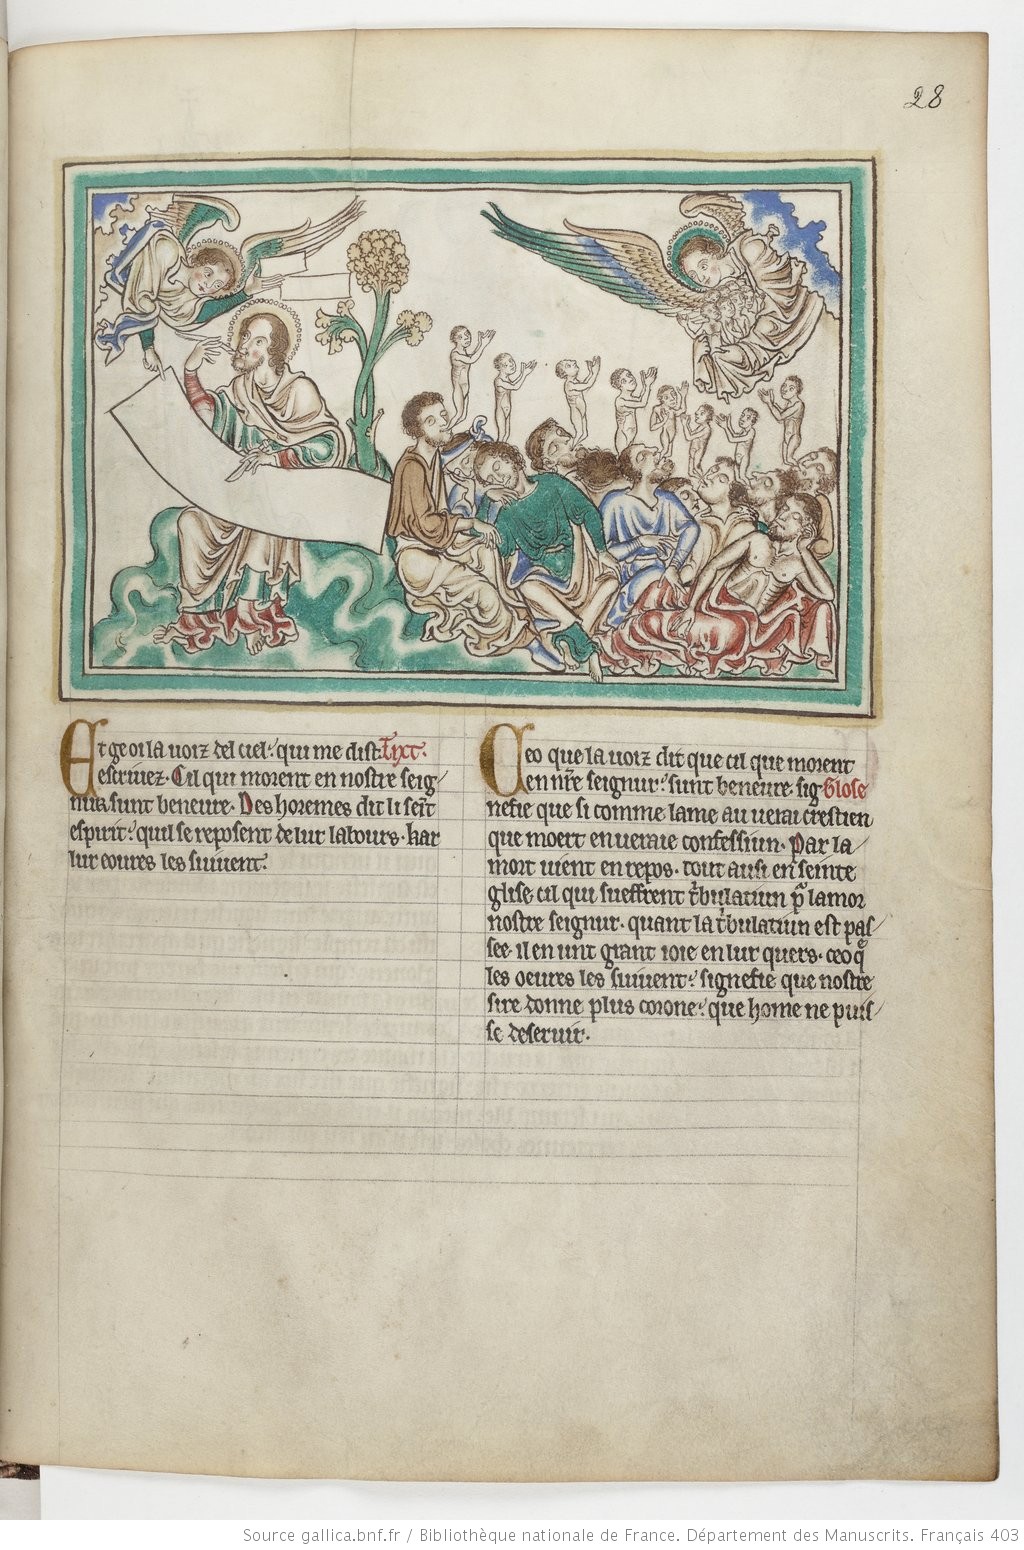 28
Et ge oi la uoiz del ciel. qui me dist. Tyxt.
escriuez. Cil qui morent en nostre seig
nur, sunt beneure. Des horemes dit li seīt
espirit. quil se reposent de lur labours. kar
lur eoures les siuuent.
Ceo que la uoiz dit que cil que morent
en nr̄e seignur. sunt beneure. sig Glose
nefie que si comme lame au uerai crestien
que moert en ueraie confessiun. Par la
mort uient en repos. tout ausi en seinte
glise. cil qui sueffrent t'bulatiun p̲ lamor
nostre seignur. quant la t'bulatiun est pas
see. il en unt grant ioie en lur quers. ceo q̄
les oeures les siuuent. signefie que nostre
sire donne plus corone. que home ne puis
se deseruir.
Source gallica.bnf.fr / Bibliothèque nationale de France. Département des Manuscrits. Français 403